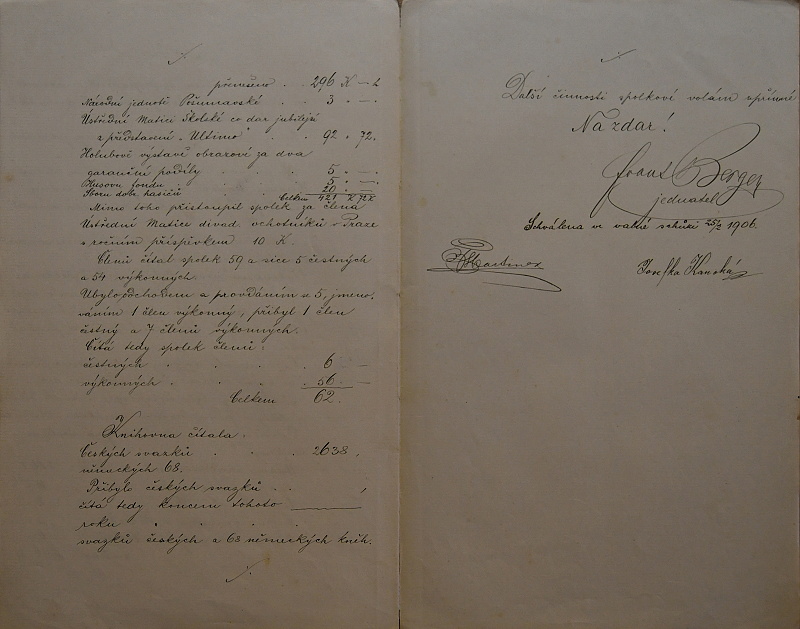 přenešeno . . 296 K — h
Národní jednotě Pošumavské . . 3 " — .
Ústřední Matici Školské co dar jubilejní
z představení „Ultimo“ . . 92 " 72.
Holubově výstavě obrazové za dva
garanční podíly . . . 5 " — .
Husovu fondu . . . 5 " — .
Sboru dobr. hasičů . . 20 " —
Celkem 421 K 72 h
Mimo toho přistoupil spolek za člena
Ústřední Matice divad. ochotníků v Praze
s ročním příspěvkem 10 K.
Členů čítal spolek 59 a sice 5 čestných
a 54 výkonných.
Ubylo odchodem a provdáním se 5, jmeno-
váním 1 člen výkonný, přibyl 1 člen
čestný a 7 členů výkonných.
Čítá tedy spolek členů:
čestných . . . . 6 —
výkonných . . . . 56 —
Celkem 62.
Knihovna čítala:
Českých svazků . . . 2638,
německých 68.
Přibylo českých svazků . .
čítá tedy koncem tohoto
roku . . . .
svazků českých a 68 německých knih.
Další činnosti spolkové volám upřímné
Na zdar!
Frant Berger
jednatel
Schválena ve valné schůzi 25/2 1906.
Josefka Hanská